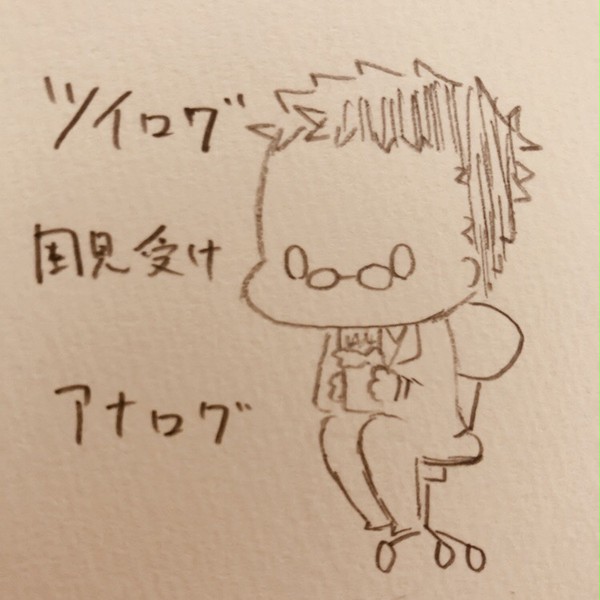 ツイログ
国見受け
アナログ